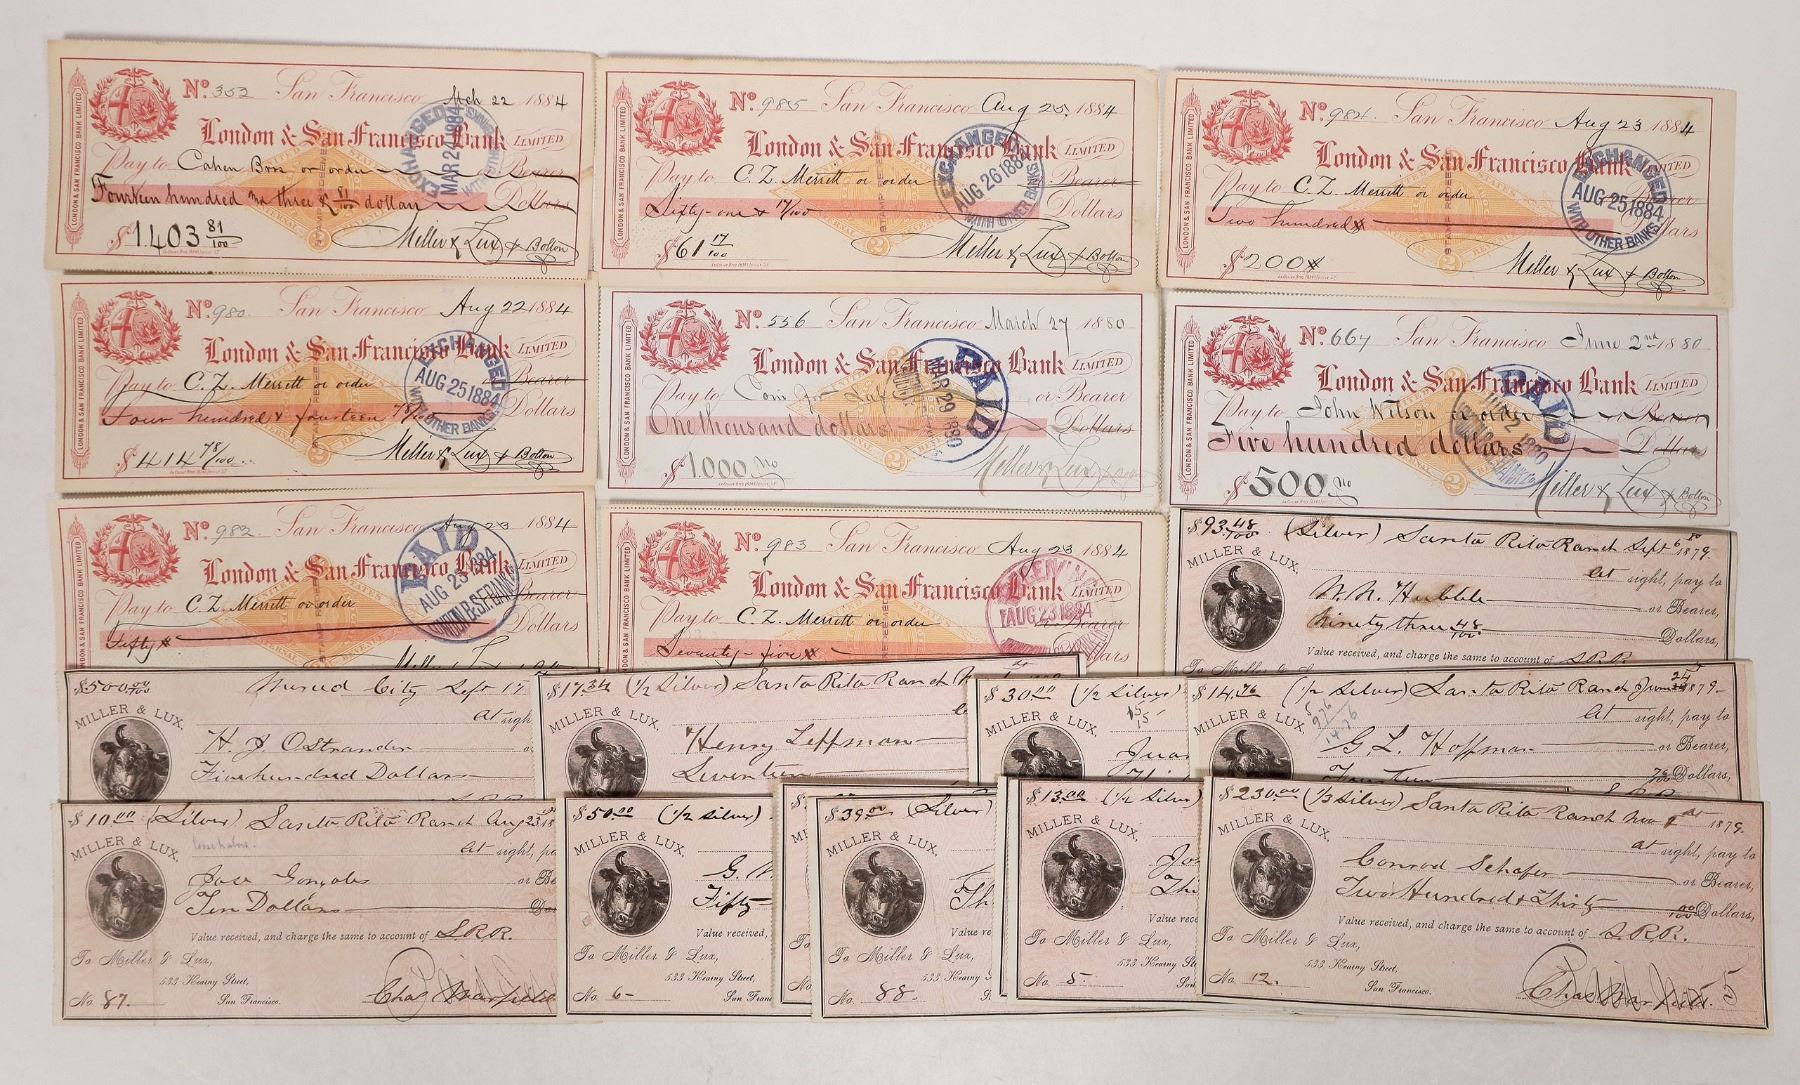 LONDON & SAN FRANCISCO BANK LIMITED
No. 352 San Francisco Mch 22 1884
London & San Francisco Bank LIMITED
Pay to Cahen Bros or order Bearer
Fourteen hundred & three & 81/100 dollars Dollars
$1,403 81/100
Miller & Lux & Bolton
EXCHANGED MAR 24 1884 WITH OTHER BANKS
LONDON & SAN FRANCISCO BANK LIMITED
No. 985 San Francisco Aug 25, 1884
London & San Francisco Bank LIMITED
Pay to C. Z. Merritt or order Bearer
Sixty-one & 17/100 Dollars
$61 17/100
Miller & Lux & Bolton
EXCHANGED AUG 26 1884 WITH OTHER BANKS
LONDON & SAN FRANCISCO BANK LIMITED
No. 984 San Francisco Aug 23 1884
London & San Francisco Bank LIMITED
Pay to C. Z. Merritt or order Bearer
Two hundred Dollars
$200
Miller & Lux & Bolton
EXCHANGED AUG 25 1884 WITH OTHER BANKS
LONDON & SAN FRANCISCO BANK LIMITED
No. 980 San Francisco Aug 22 1884
London & San Francisco Bank LIMITED
Pay to C. Z. Merritt or order Bearer
Four hundred & fourteen 78/100 Dollars
$414 78/100
Miller & Lux & Bolton
EXCHANGED AUG 25 1884 WITH OTHER BANKS
LONDON & SAN FRANCISCO BANK LIMITED
No. 556 San Francisco March 27 1880
London & San Francisco Bank LIMITED
Pay to or Bearer
One thousand dollars Dollars
$1,000 No
Miller & Lux
PAID MAR 29 1880
LONDON & SAN FRANCISCO BANK LIMITED
No. 667 San Francisco June 2nd 1880
London & San Francisco Bank LIMITED
Pay to John Wilson or order Bearer
Five hundred dollars Dollars
$500 No
Miller & Lux & Bolton
PAID 2 1880
LONDON & SAN FRANCISCO BANK LIMITED
No. 982 San Francisco Aug 23 1884
London & San Francisco Bank LIMITED
Pay to C. Z. Merritt or order Bearer
Fifty Dollars
PAID AUG 23 1884
No. 983 San Francisco Aug 23 1884
London & San Francisco Bank LIMITED
Pay to C. Z. Merritt or order Bearer
Seventy-five Dollars
AUG 23 1884
$93 48/100 (Silver) Santa Rita Ranch Sept 6 1879
MILLER & LUX,
at sight, pay to
W. N. Hubble or Bearer,
Ninety three 48/100 Dollars,
Value received, and charge the same to account of S.R.R.
$500 00/100 Merced City Sept 17
MILLER & LUX
At sigh
H. J. Ostrander
Five hundred Dollars
$17.34 (1/2 Silver) Santa Rita Ranch
MILLER & LUX,
Henry Leffman
Seventeen
$30.00 (1/2 Silver)
MILLER & LUX,
Juan
$14.76 (1/2 Silver) Santa Rita Ranch June 24 1879
MILLER & LUX,
At sight, pay to
G. L. Hoffman or Bearer,
Fourteen 76/100 Dollars,
$10.00 (Silver) Santa Rita Ranch Aug 23 18
MILLER & LUX,
at sight, pa
Jose Gonzales or Be
Ten Dollars Do
Value received, and charge the same to account of S.R.R.
To Miller & Lux,
533 Kearny Street,
No. 87. San Francisco.
$50.00 (1/2 Silver)
MILLER & LUX,
G. W
Fifty
Value received,
To Miller & Lux,
533 Kearny Street,
No. 6 San Fran
$39.00 (Silver)
MILLER & LUX,
Th
Value re
To Miller & Lux,
533 Kearny S
No. 88. S
$13.00 (1/2 Silver)
MILLER & LUX,
Jo
Thi
Value rece
To Miller & Lux,
533 Kearny St
No. 5. San
$230.00 (1/3 Silver) Santa Rita Ranch Nov 1st 1879.
MILLER & LUX,
at sight, pay to
Conrod Schafer or Bearer,
Two Hundred & Thirty 00/100 Dollars,
Value received, and charge the same to account of S.R.R.
To Miller & Lux,
533 Kearny Street,
No. 12. San Francisco.